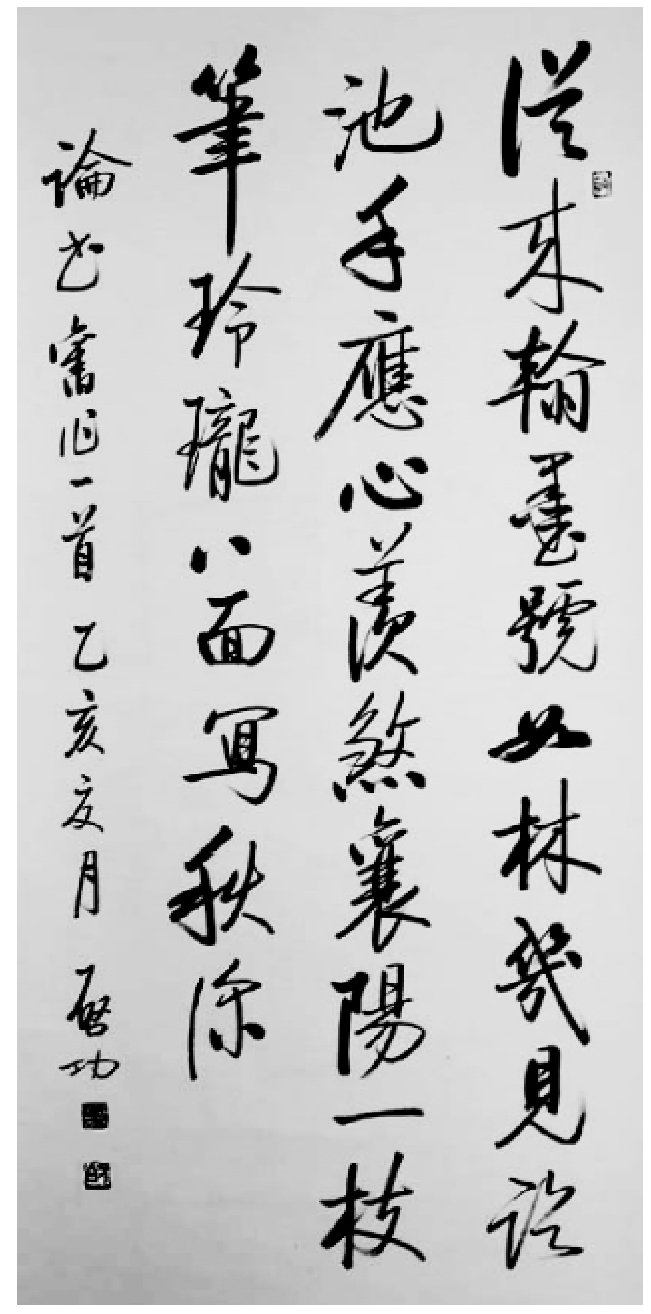 從来翰墨號如林幾見臨
池手應心羨煞襄陽一枝
筆玲瓏八面寫秋深
論書舊作一首乙亥夏月啓功